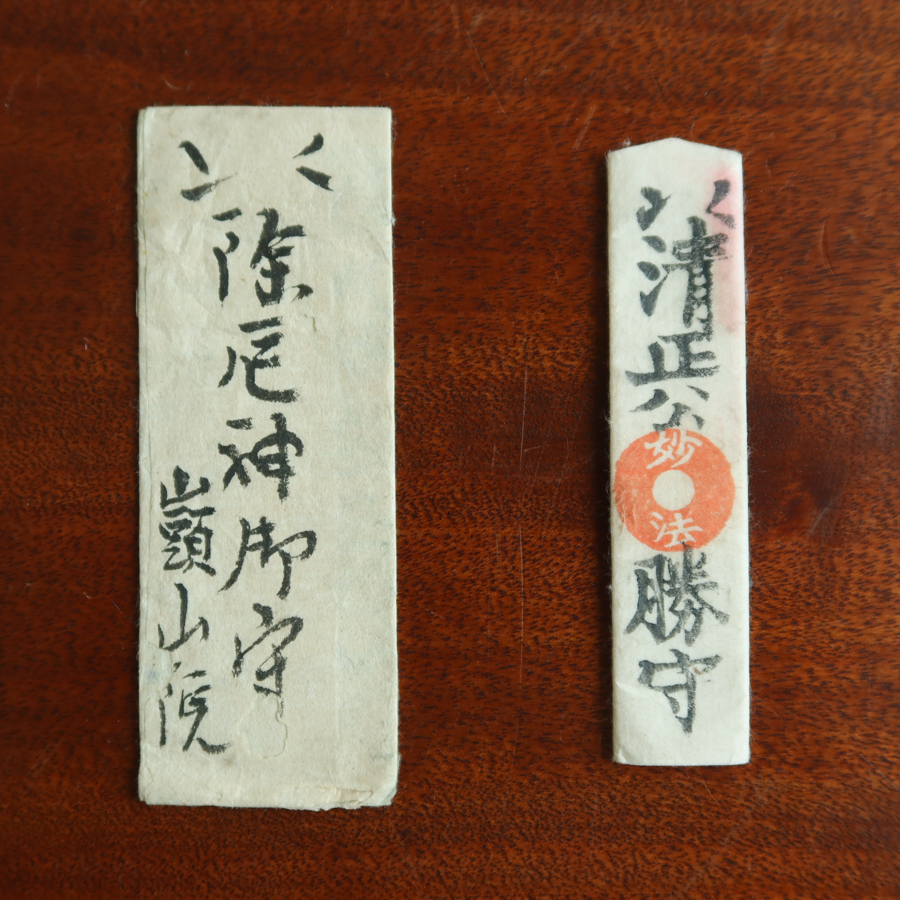 除厄神御守
山頭山院
清正公
妙法
勝守